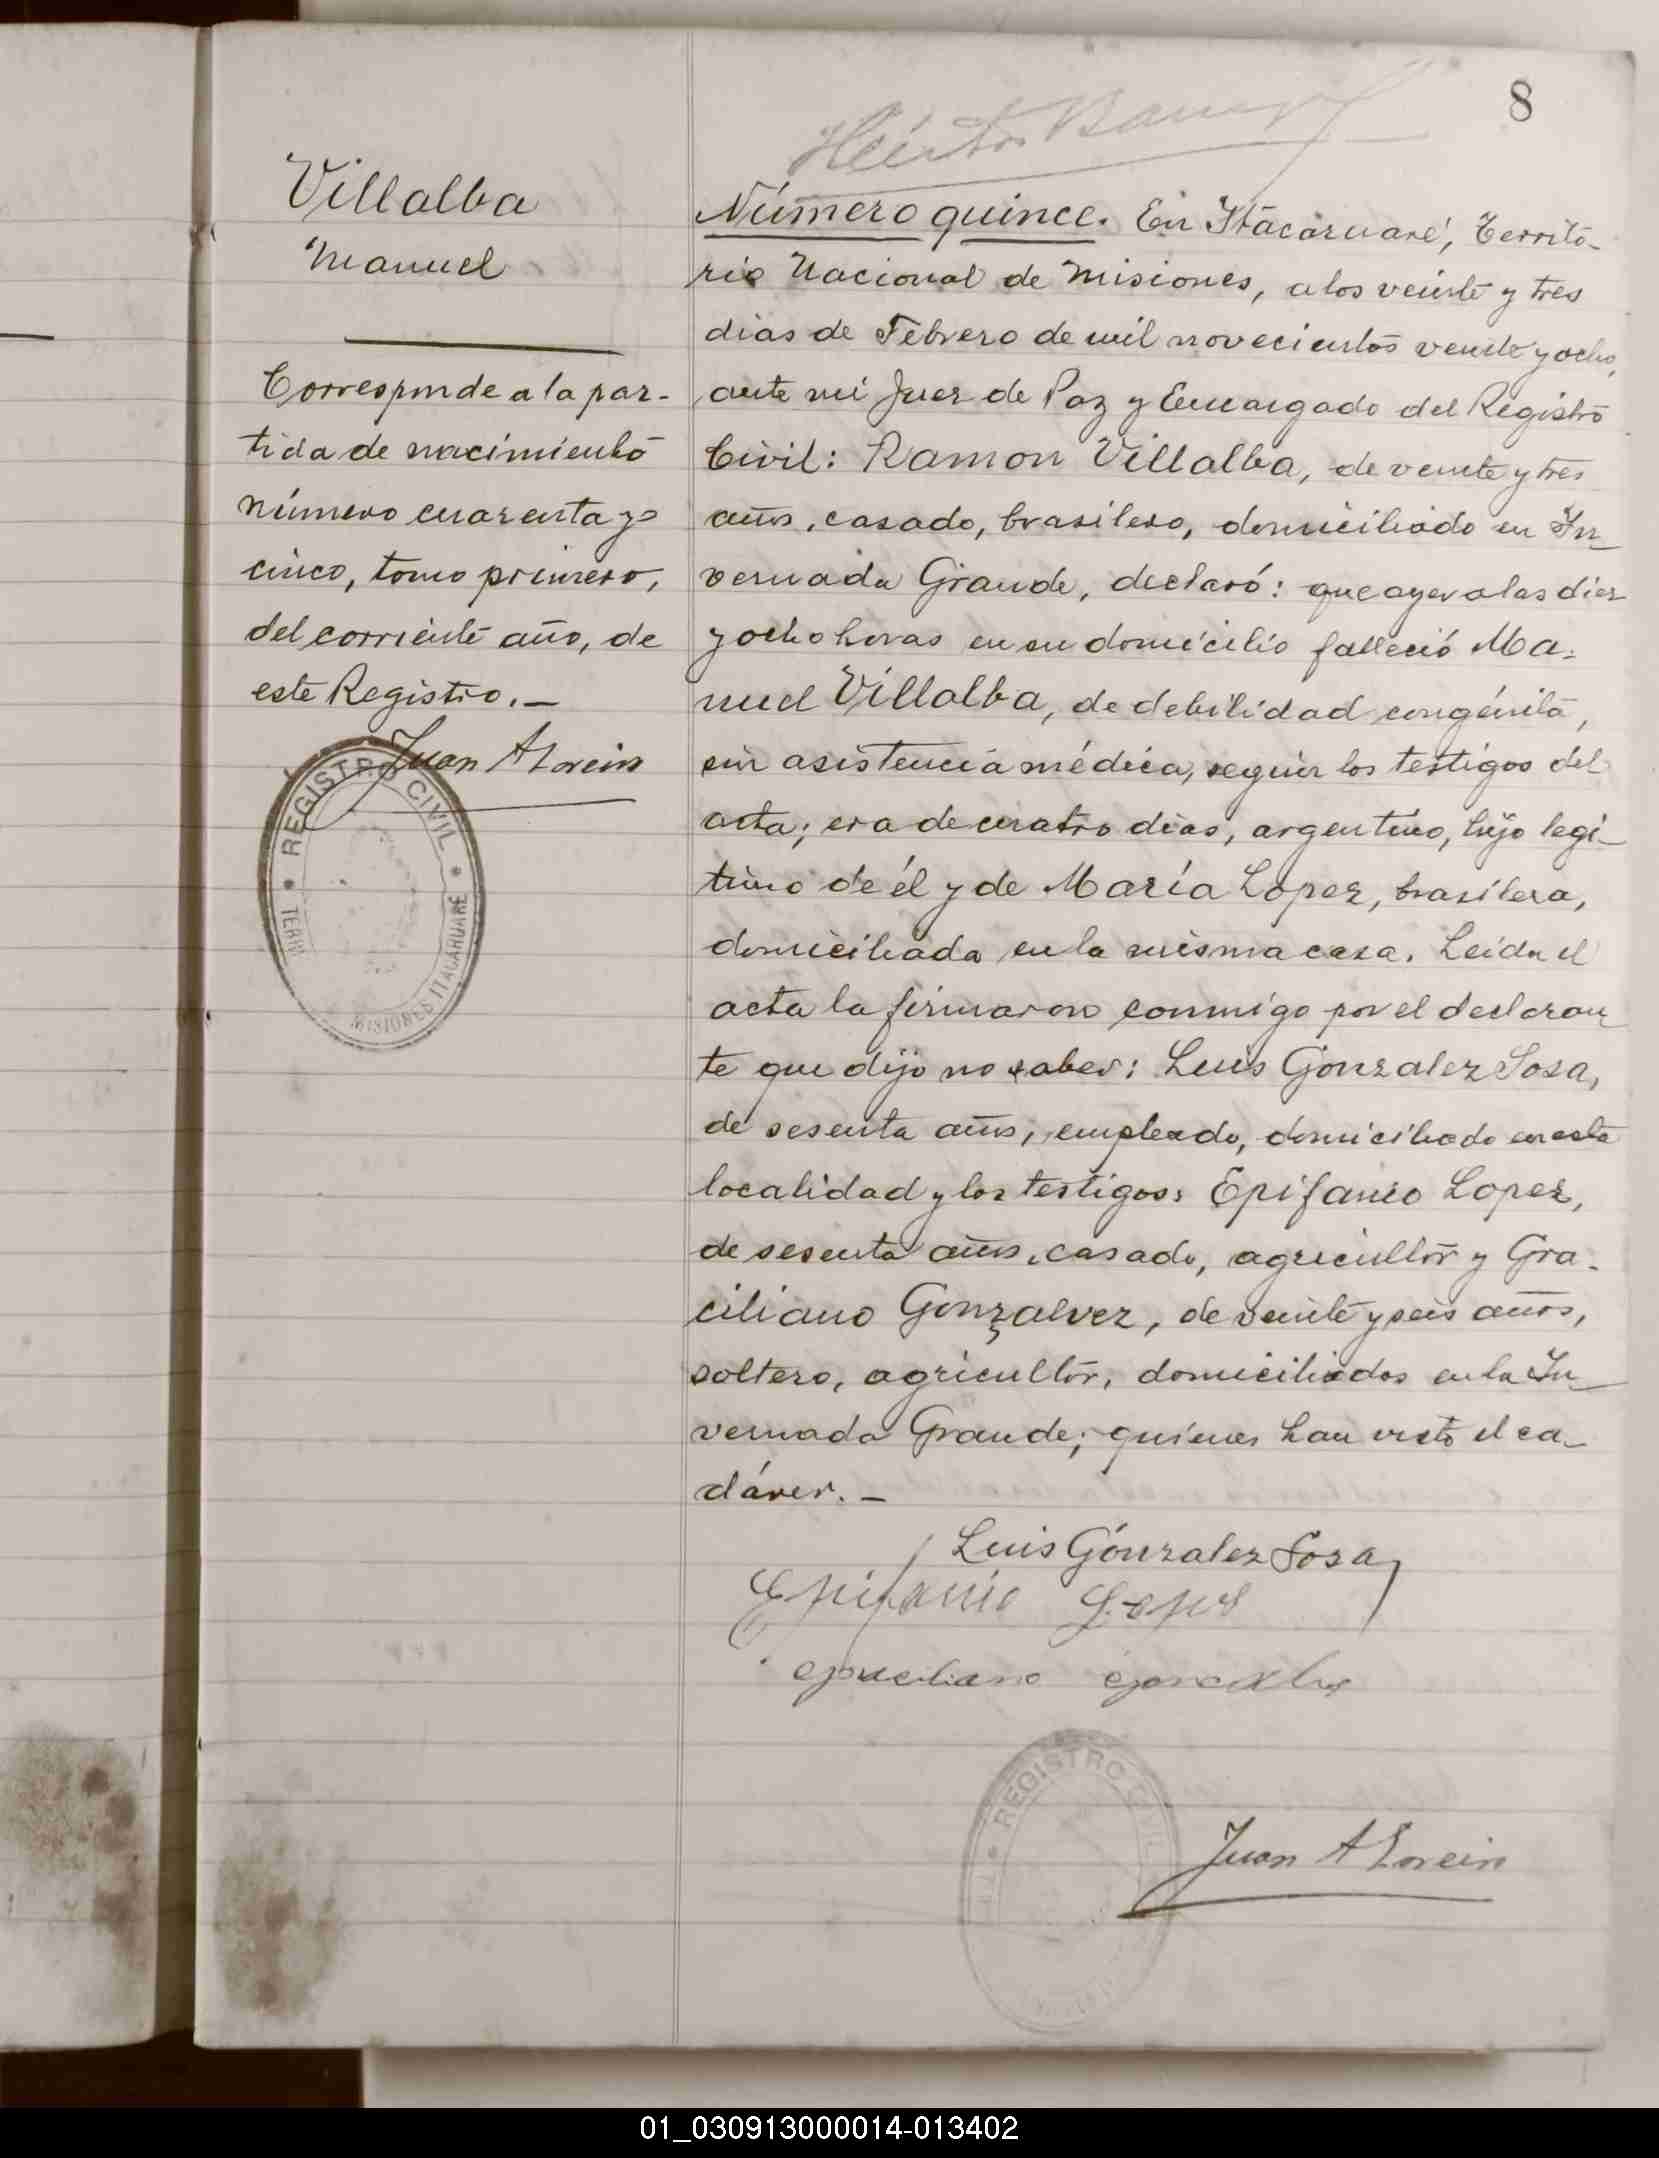 8
Héctor
Villalba
Manuel
Corresponde a la par-
tida de nacimiento
número cuarenta y
cinco, tomo primero,
del corriente año, de
este Registro.—
Juan A Lorein
REGISTRO CIVIL
TERR MISIONES ITACARUARÉ
Número quince. En Itacaruaré, Territo-
rio Nacional de Misiones, a los veinte y tres
dias de Febrero de mil novecientos veinte y ocho,
ante mi Juez de Paz y Encargado del Registro
Civil: Ramon Villalba, de veinte y tres
años, casado, brasilero, domiciliado en In-
vernada Grande, declaró: que ayer a las diez
y ocho horas en su domicilio falleció Ma-
nuel Villalba, de debilidad congénita,
sin asistencia médica, según los testigos del
acta; era de cuatro dias, argentino, hijo legi-
timo de él y de María Lopez, brasilera,
domiciliada en la misma casa. Leida el
acta la firmaron conmigo por el declaran-
te que dijo no saber: Luis Gonzalez Sosa,
de sesenta años, empleado, domiciliado en esta
localidad y los testigos: Epifanio Lopez,
de sesenta años, casado, agricultor y Gra-
ciliano Gonzalvez, de veinte y seis años,
soltero, agricultor, domiciliados en la In-
vernada Grande; quienes han visto el ca-
dáver.—
Luis Gónzalez Sosa
Epifanio Lopes
Graciliano
REGISTRO CIVIL
Juan A Lorein
01_030913000014-013402